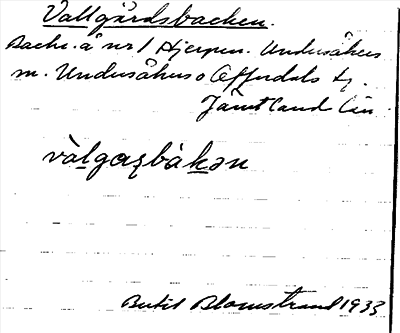 Vallgårdsbacken.
Backe å nr 1 Hjerpen. Undersåkers
m. Undersåkers o Offerdals tg.
Jämtland län
vàlgaʂbàkən
Bertil Blomstrand 1933